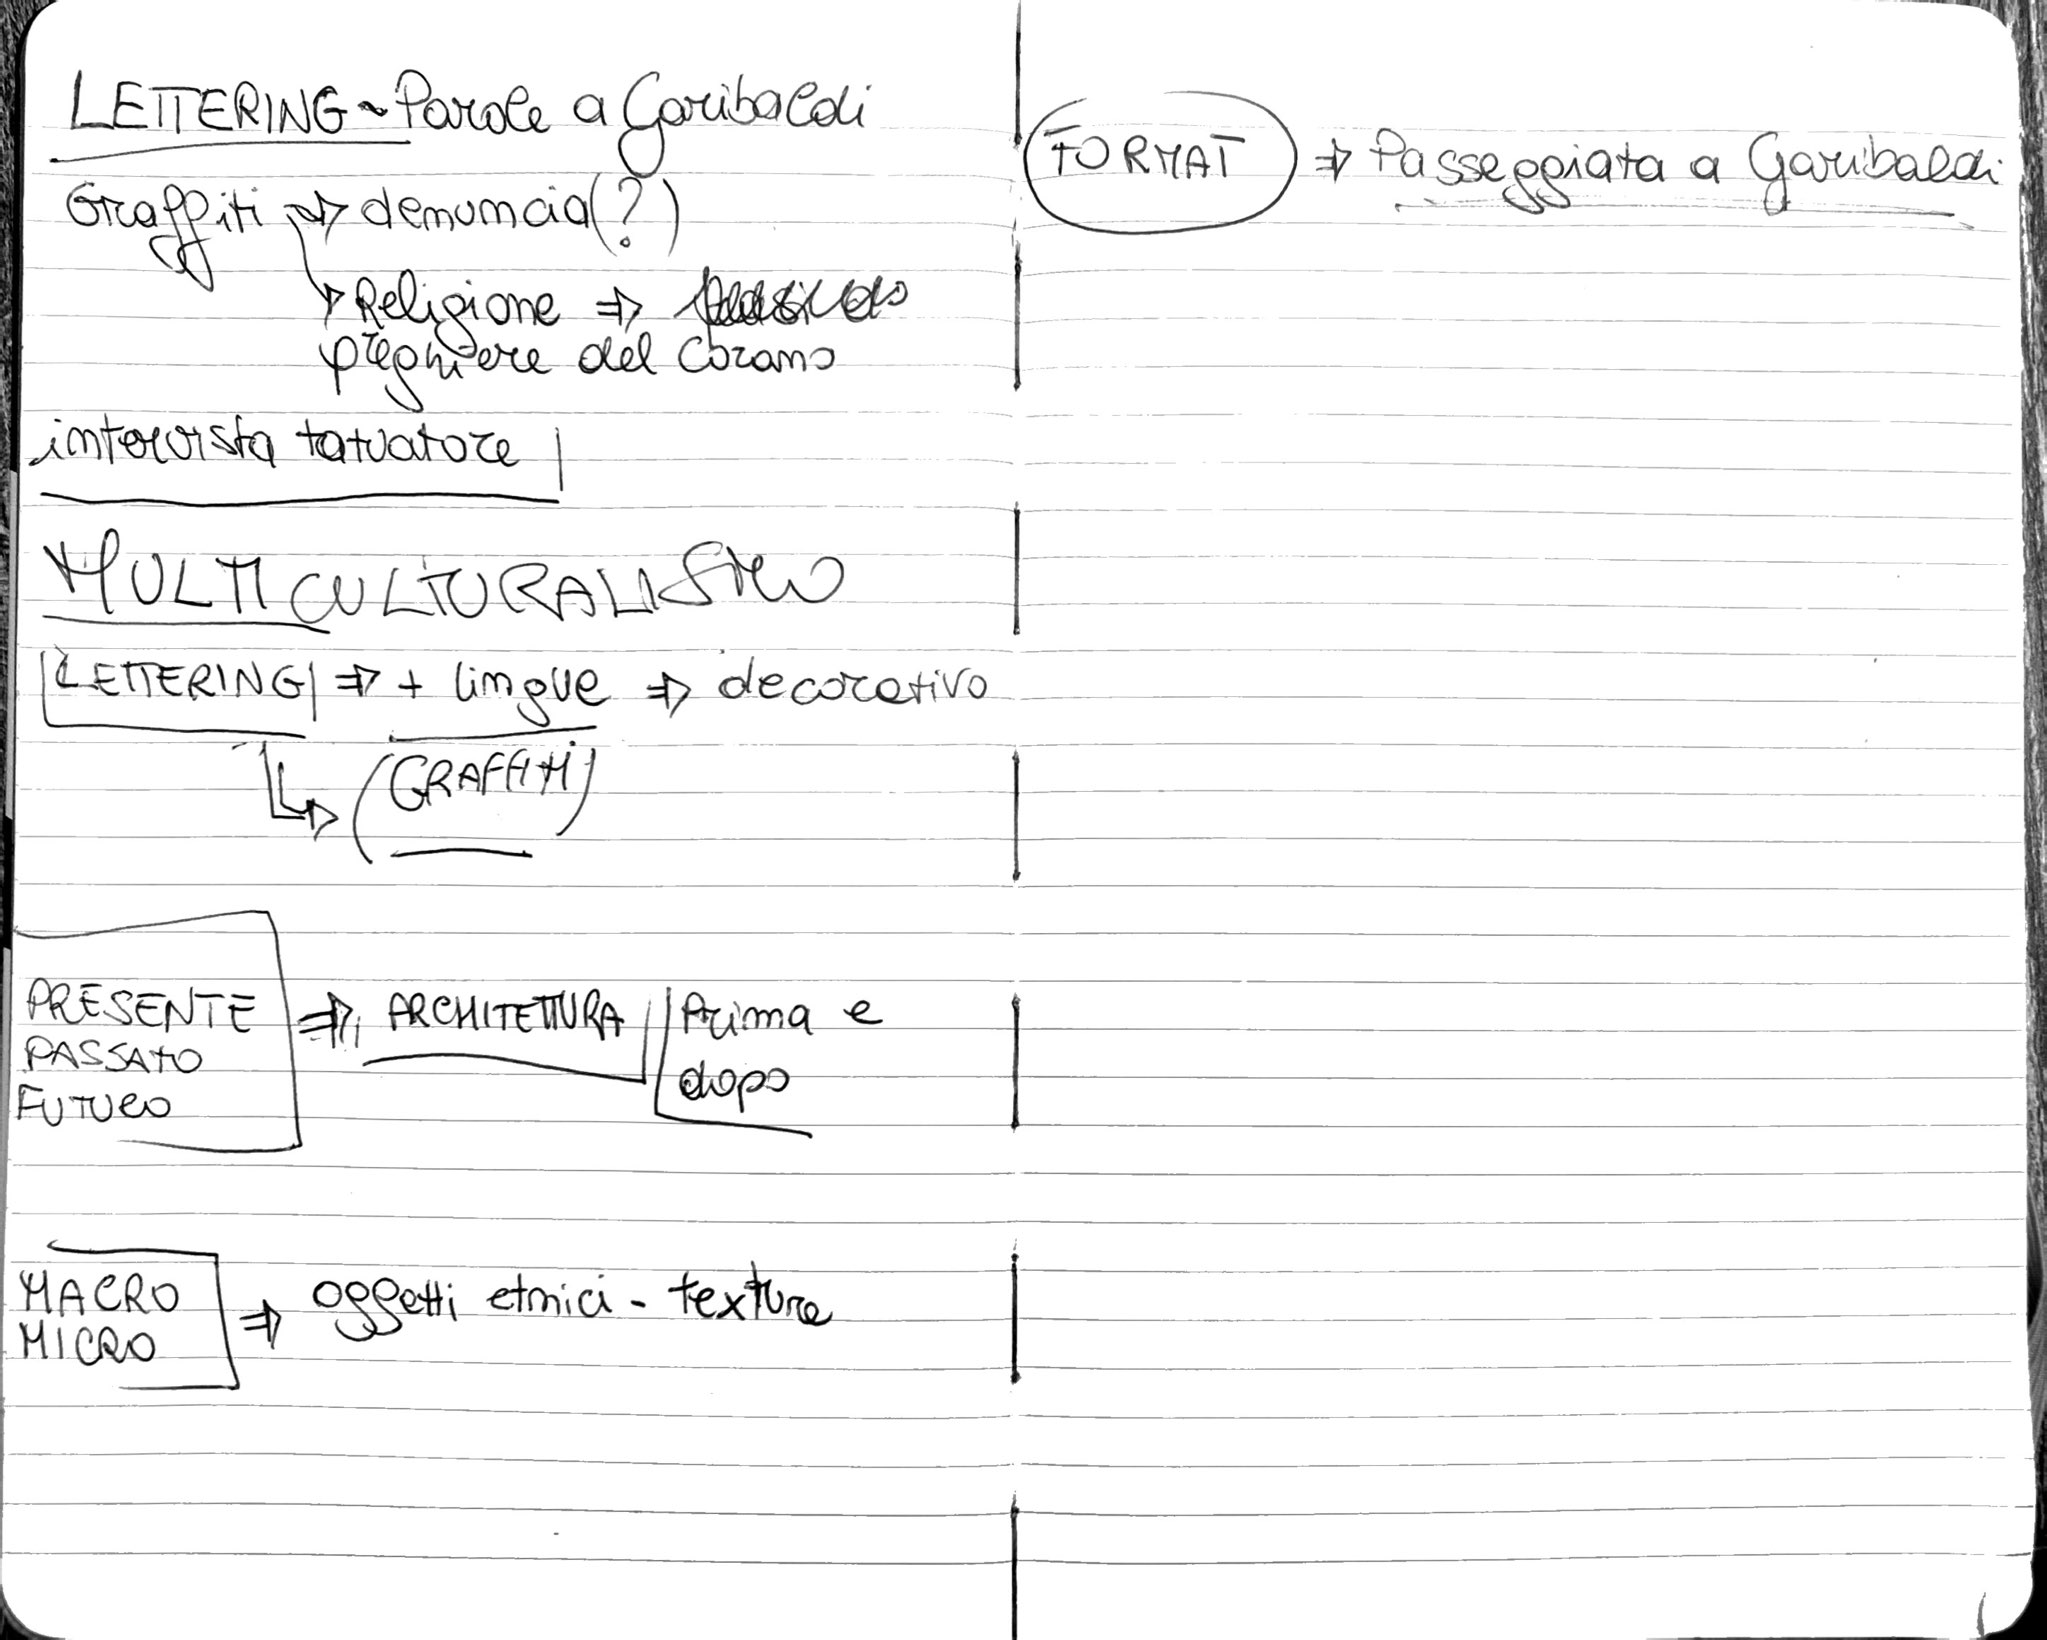 LETTERING ~ Parole a Garibaldi
Graffiti => denuncia (?)
Religione =>
preghiere del Corano
intervista tatuatore
MULTICULTURALISMO
LETTERING => + lingue => decorativo
(GRAFFITI)
PRESENTE
PASSATO
FUTURO
=> ARCHITETTURA
Prima e
dopo
MACRO
MICRO
=> oggetti etnici - texture
FORMAT => Passeggiata a Garibaldi